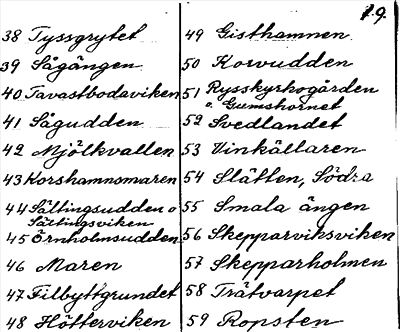 19.
38 Tyssgrytet
39 Sågängen
40 Tavastbodaviken
41 Sågudden
42 Mjölkvallen
43 Korshamnsmaren
44 Sältingsudden o
Sältingsviken
45 Örnholmsudden
46 Maren
47 Filbyttgrundet
48 Hötterviken
49 Gisthamnen
50 Korvudden
51 Rysskyrkogården
o. Gumshornet
52 Svedlandet
53 Vinkällaren
54 Slätten, Södra
55 Smala ängen
56 Skepparviksviken
57 Skepparholmen
58 Trätvarpet
59 Ropsten